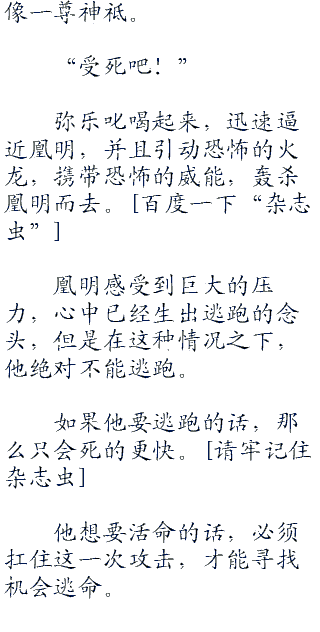 像一尊神祇。
“受死吧！”
弥乐叱喝起来，迅速逼
近凰明，并且引动恐怖的火
龙，携带恐怖的威能，轰杀
凰明而去。[百度一下“杂志
虫”]
凰明感受到巨大的压
力，心中已经生出逃跑的念
头，但是在这种情况之下，
他绝对不能逃跑。
如果他要逃跑的话，那
么只会死的更快。[请牢记住
杂志虫]
他想要活命的话，必须
扛住这一次攻击，才能寻找
机会逃命。